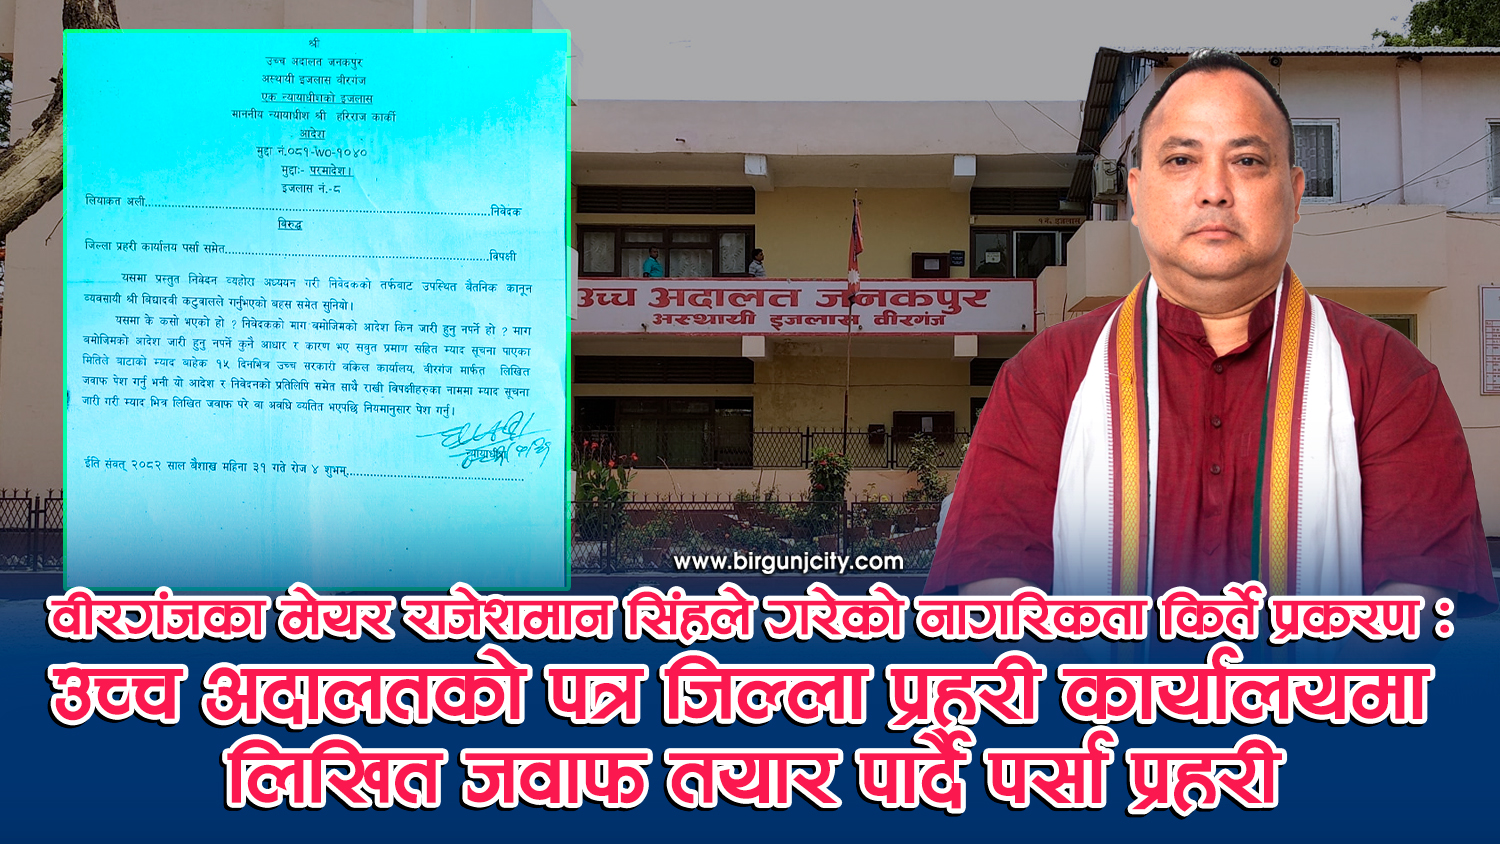 श्री
उच्च अदालत जनकपुर
अस्थायी इजलास वीरगंज
एक न्यायाधीशको इजलास
माननीय न्यायाधीश श्री हरिराज कार्की
आदेश
मुद्दा नं.०८१-WO-१०४०
मुद्दाः- परमादेश।
इजलास नं.-८
लियाकत अली...निवेदक
विरुद्ध
जिल्ला प्रहरी कार्यालय पर्सा समेत...विपक्षी
यसमा प्रस्तुत निवेदन व्यहोरा अध्ययन गरी निवेदकको तर्फबाट उपस्थित वैतनिक कानून
व्यवसायी श्री विद्यादेवी कटुवालले गर्नुभएको बहस समेत सुनियो।
यसमा के कसो भएको हो ? निवेदकको माग बमोजिमको आदेश किन जारी हुनु नपर्ने हो ? माग
बमोजिमको आदेश जारी हुनु नपर्ने कुनै आधार र कारण भए सवुत प्रमाण सहित म्याद सूचना पाएका
मितिले बाटाको म्याद बाहेक १५ दिनभित्र उच्च सरकारी वकिल कार्यालय, वीरगंज मार्फत लिखित
जवाफ पेश गर्नु भनी यो आदेश र निवेदनको प्रतिलिपि समेत साथै राखी विपक्षीहरुका नाममा म्याद सूचना
जारी गरी म्याद भित्र लिखित जवाफ परे वा अवधि व्यतित भएपछि नियमानुसार पेश गर्नु।
न्यायाधीश
ईति संवत् २०८२ साल बैशाख महिना ३१ गते रोज ४ शुभम्...
१ नं. इजलास
उच्च अदालत जनकपुर
अस्थायी इजलास वीरगंज
www.birgunjcity.com
वीरगंजका मेयर राजेशमान सिंहले गरेको नागरिकता किर्ते प्रकरण :
उच्च अदालतको पत्र जिल्ला प्रहरी कार्यालयमा
लिखित जवाफ तयार पार्दै पर्सा प्रहरी